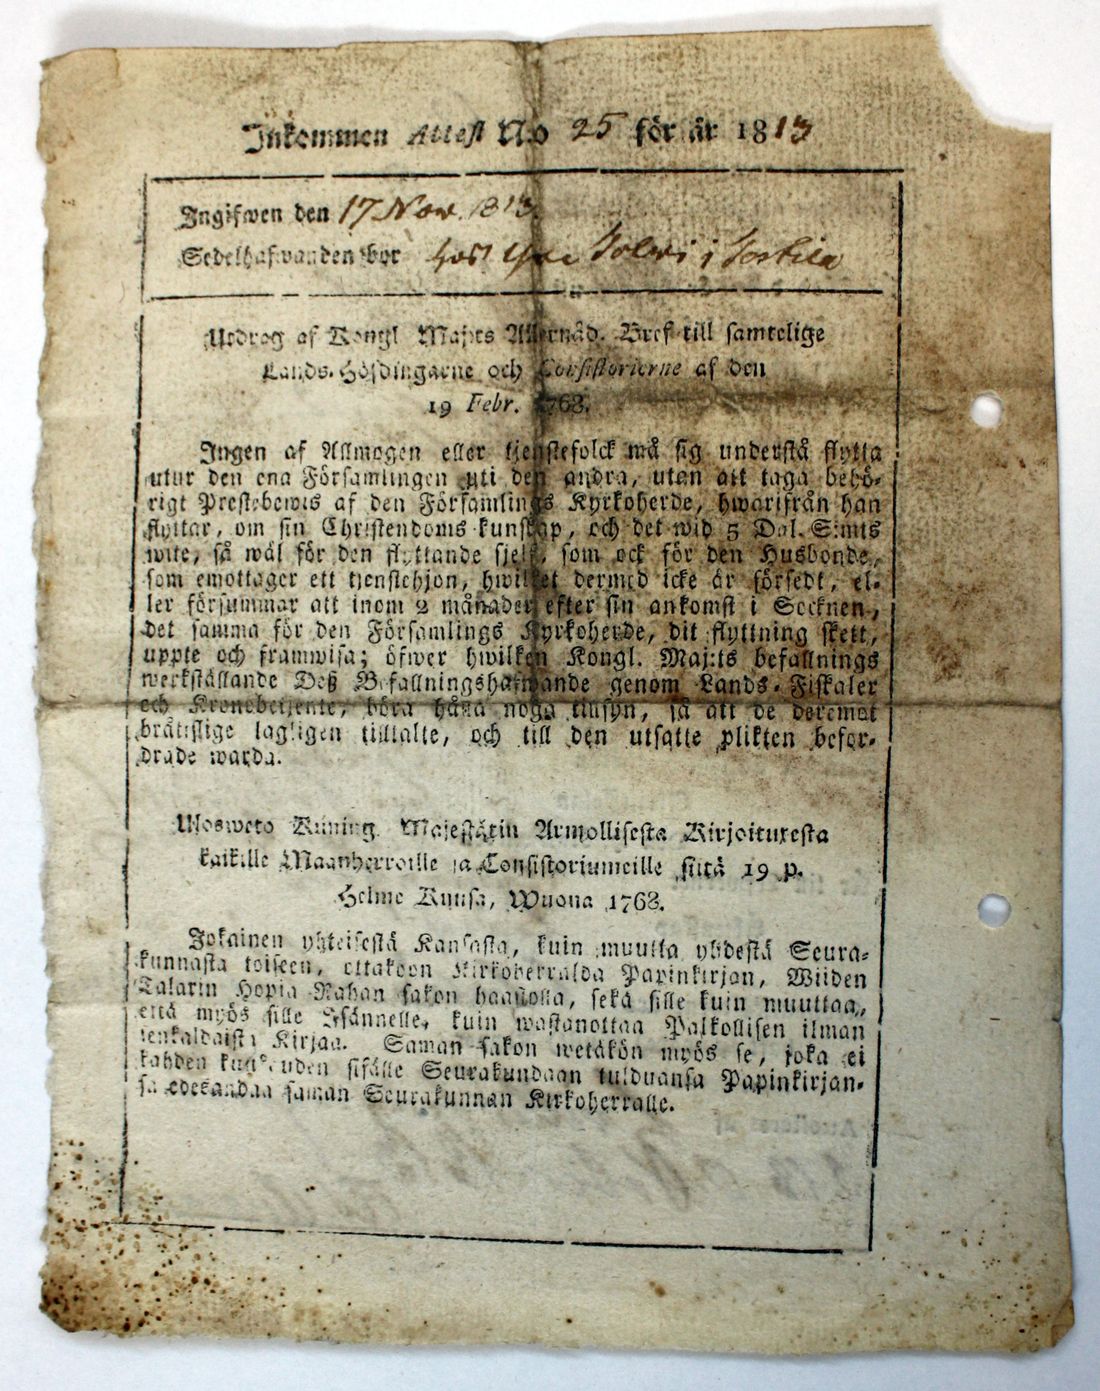 Inkommen Attest No 25 för år 1813
Ingifwen den 17 Nov. 1813.
Sedelhafwanden bor hos i
Utdrag af Kongl Maj:ts Allernåd. Bref till samtelige
Lands-Höfdingarne och Consistorierne af den
19 Febr. 1768.
Ingen af Allmogen eller tjenstefolck må sig understå flytta
utur den ena Församlingen uti den andra, utan att taga behö-
rigt Prestebewis af den Församlings Kyrkoherde, hwarifrån han
flyttar, om sin Christendoms kunskap, och det wid 5 Dal. S:mts
wite, så wäl för den flyttande sjelf, som ock för den Husbonde,
som emottager ett tjenstehjon, hwilket dermed icke är försedt, el-
ler försummar att inom 2 månader efter sin ankomst i Socknen,
det samma för den Församlings Kyrkoherde, dit flyttning skett,
uppte och framwisa; öfwer hwilken Kongl. Maj:ts befallnings
werkställande Deß Befallningshafwande genom Lands-Fiskaler
och Kronobetjente, böra hålla noga tillsyn, så att de deremot
bråttslige lagligen tilltalte, och till den utsatte plikten befor-
drade warda.
Ulosweto Kuning. Majestätin Armollisesta Kirjoituxesta
kaikille Maanherroille ja Consistoriumeille siitä 19 p.
Helme Kuusa, Wuona 1768.
Jokainen yhteisestä Kansasta, kuin muutta yhdestä Seura-
kunnasta toiseen, ottakoon Kirkoherralda Papinkirjan, Wiiden
Talarin Hopia Rahan sakon haastolla, sekä sille kuin muuttaa,
että myös sille Isännelle, kuin wastanottaa Palkollisen ilman
senkaldaista Kirjaa. Saman sakon wetäkön myös se, joka ei
kahden kuukauden sisälle Seurakundaan tulduansa Papinkirjan-
sa edeskandaa saman Seurakunnan Kirkoherralle.